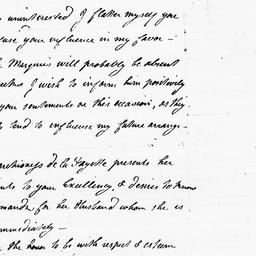 uninterested I flatter myself you
use your influence in my favor -
Marquis will probably be absent
I wish to inform him positively
your sentiments on this occasion, as they
tend to influence my future arrange-
de la Fayette presents her
to your Excellency, & desires to know
for her Husband whom she is
immediately -
the honor to be with respect & esteem